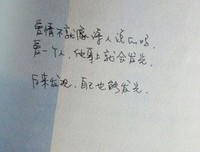 爱情不就像海人说的吗
爱一个人,他身上就会发光.
后来发现,自己也能发光.